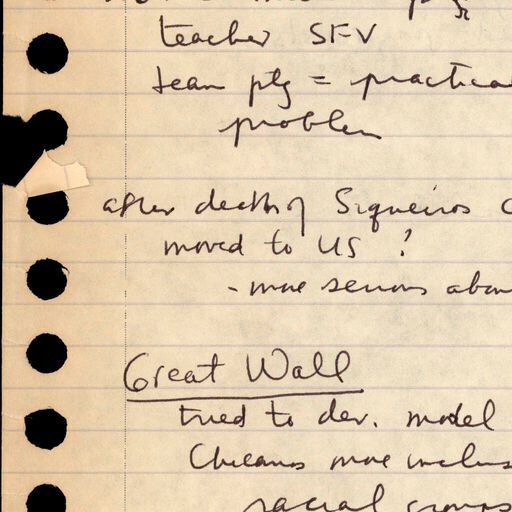 teacher SFV
team ptg = practica
problem
after death of Siqueiros
moved to US ?
- more serious abou
Great Wall
tried to dev. model
Chicanos more inclus
racial groups